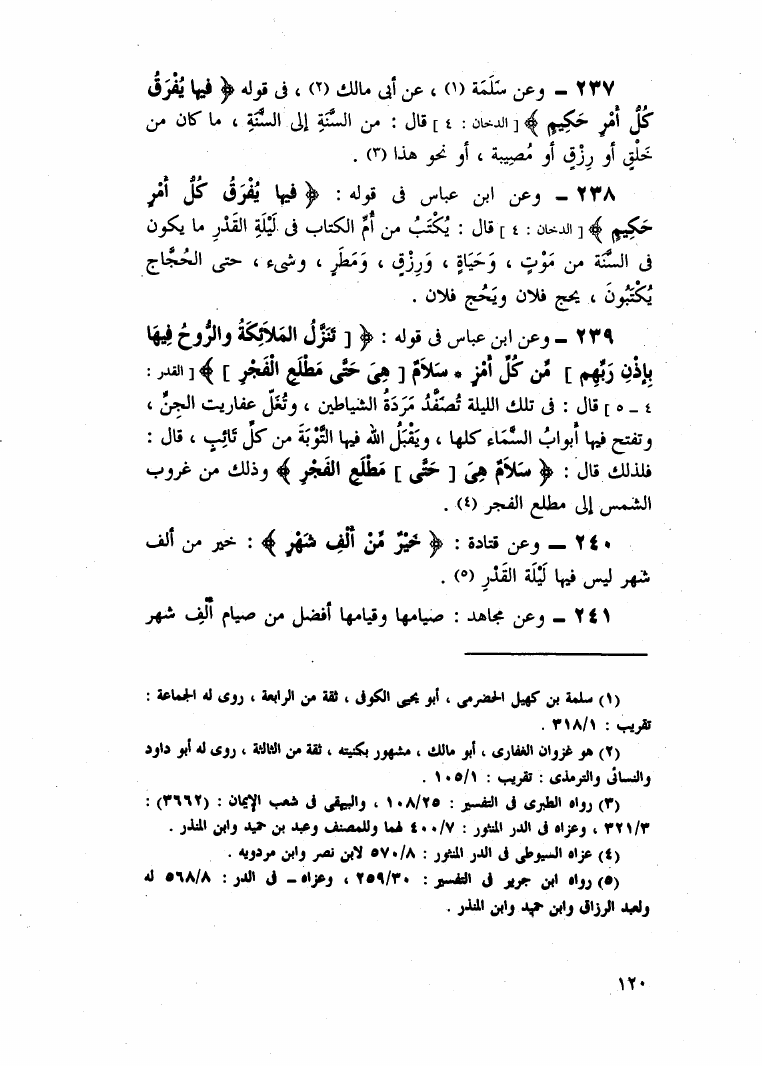 ٢٣٧ – وعن سَلَمَة (١) ، عن أبى مالك (٢) ، فى قوله ﴿ فيها يُفْرَقُ
كُلُّ أَمْرٍ حَكِيمٍ ﴾ [ الدخان : ٤ ] قال : من السَّنَةِ إلى السَّنَةِ ، ما كان من
خَلْقٍ أو رِزْقٍ أو مُصِيبة ، أو نحو هذا (٣) .
٢٣٨ – وعن ابن عباس فى قوله : ﴿ فيها يُفْرَقُ كُلُّ أَمْرٍ
حَكِيمٍ ﴾ [ الدخان : ٤ ] قال : يُكْتَبُ من أُمِّ الكتاب فى لَيْلَةِ القَدْرِ ما يكون
فى السَّنَة من مَوْتٍ ، وَحَيَاةٍ ، وَرِزْقٍ ، وَمَطَرٍ ، وشىء ، حتى الحُجَّاج
يُكْتَبُونَ ، يحج فلان ويَحُج فلان .
٢٣٩ – وعن ابن عباس فى قوله : ﴿ [ تَنَزَّلُ المَلَائِكَةُ والرُّوحُ فِيهَا
بِإذْنِ رَبِّهِم ] مِّن كُلِّ أَمْرٍ * سَلَامٌ [ هِىَ حَتَّى مَطْلَعِ الْفَجْرِ ] ﴾ [ القدر :
٤ – ٥ ] قال : فى تلك الليلة تُصَفَّدُ مَرَدَةُ الشياطين ، وتُغَلّ عفاريت الجِنِّ ،
وتفتح فيها أبوابُ السَّمَاء كلها ، ويَقْبَلُ الله فيها التَّوْبَةَ من كلِّ تَائِبٍ ، قال :
فلذلك قال : ﴿ سَلَامٌ هِىَ [ حَتَّى ] مَطْلَعِ الفَجْرِ ﴾ وذلك من غروب
الشمس إلى مطلع الفجر (٤) .
٢٤٠ – وعن قتادة : ﴿ خَيْرٌ مِّنْ أَلْفِ شَهْرٍ ﴾ : خير من ألف
شهر ليس فيها لَيْلَة القَدْرِ (٥) .
٢٤١ – وعن مجاهد : صيامها وقيامها أفضل من صيام ألْفِ شهر
(١) سلمة بن كهيل الحضرمى ، أبو يحيى الكوفى ، ثقة من الرابعة ، روى له الجماعة :
تقريب : ٣١٨/١ .
(٢) هو غزوان الغفارى ، أبو مالك ، مشهور بكنيته ، ثقة من الثالثة ، روى له أبو داود
والنسائى والترمذى : تقريب : ١٠٥/١ .
(٣) رواه الطبرى فى التفسير : ١٠٨/٢٥ ، والبيهقى فى شعب الإيمان : (٣٦٦٢) :
٣٢١/٣ ، وعزاه فى الدر المنثور : ٤٠٠/٧ لهما وللمصنف وعبد بن حميد وابن المنذر .
(٤) عزاه السيوطى فى الدر المنثور : ٥٧٠/٨ لابن نصر وابن مردويه .
(٥) رواه ابن جرير فى التفسير : ٢٥٩/٣٠ ، وعزاه – فى الدر : ٥٦٨/٨ له
ولعبد الرزاق وابن حميد وابن المنذر .
١٢٠